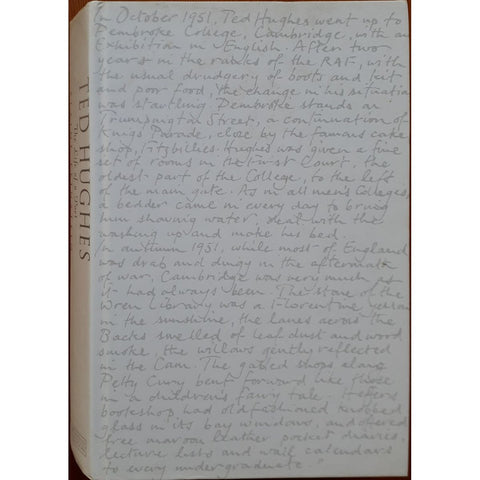 TED HUGHES
The Life of a Poet
In October 1951, Ted Hughes went up to
Pembroke College, Cambridge, with an
Exhibition in English. After two
years in the ranks of the RAF, with
the usual drudgery of boots and kit
and poor food, the change in his situation
was startling. Pembroke stands in
Trumpington Street, a continuation of
Kings Parade, close by the famous cake
shop, Fitzbillies. Hughes was given a fine
set of rooms in the First Court, the
oldest part of the College, to the left
of the main gate. As in all men's Colleges,
a bedder came in every day to bring
him shaving water, deal with the
washing up and make his bed.
In autumn 1951, while most of England
was drab and dingy in the aftermath
of war, Cambridge was very much as
it had always been. The stone of the
Wren Library was a Florentine
in the sunshine, the lanes across the
Backs smelled of leaf dust and wood
smoke, the willows gently reflected
in the Cam. The gabled shops along
Petty Cury bent forward like those
in a children's fairy tale. Heffers
bookshop had old fashioned knobbed
glass in its bay windows, and offered
free maroon leather pocket diaries,
lecture lists and wall calendars
to every undergraduate."